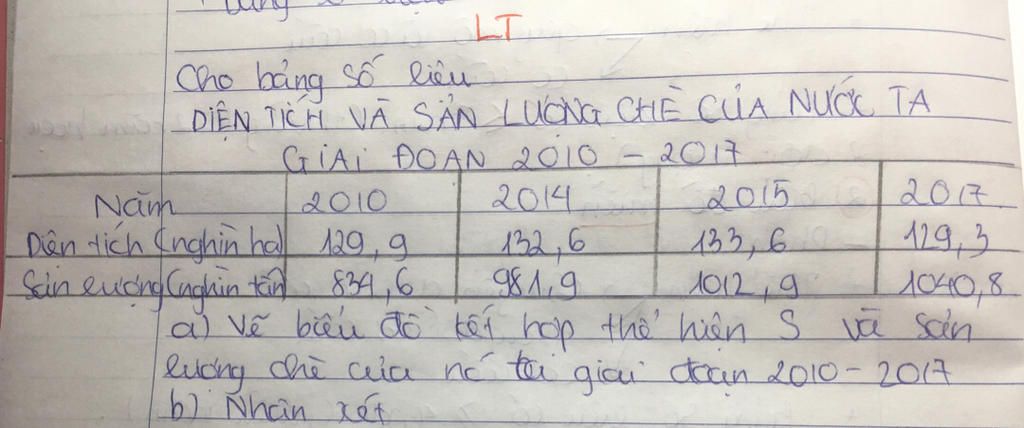 LT
Cho bảng số liệu
DIỆN TÍCH VÀ SẢN LƯỢNG CHÈ CỦA NƯỚC TA
GIAI ĐOẠN 2010 - 2017
Năm 2010 2014 2015 2017
Diện tích (nghìn ha) 129,9 132,6 133,6 129,3
Sản lượng (nghìn tấn) 834,6 981,9 1012,9 1040,8
a) Vẽ biểu đồ kết hợp thể hiện S và sản
lượng chè của nc ta giai đoạn 2010 - 2017
b) Nhận xét